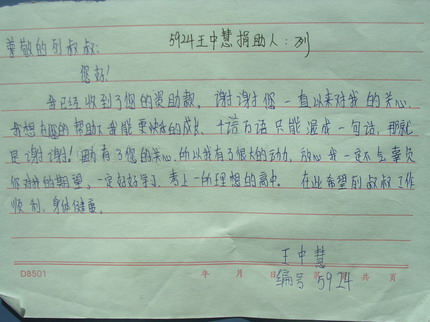 尊敬的列叔叔: 5924王中慧捐助人:列
您好!
我已经收到了您的资助款。谢谢您一直以来对我的关心,
我想在您的帮助下我能更快乐的成长。千言万语只能混成一句话,那就
是谢谢!因为有了您的关心,所以我有了很大的动力,放心我一定不会辜负
你对我的期望,一定好好学习,考上一所理想的高中。在此希望列叔叔工作
顺利,身体健康。
王中慧
D8501 年 月 日 第 共 页
编号 5924